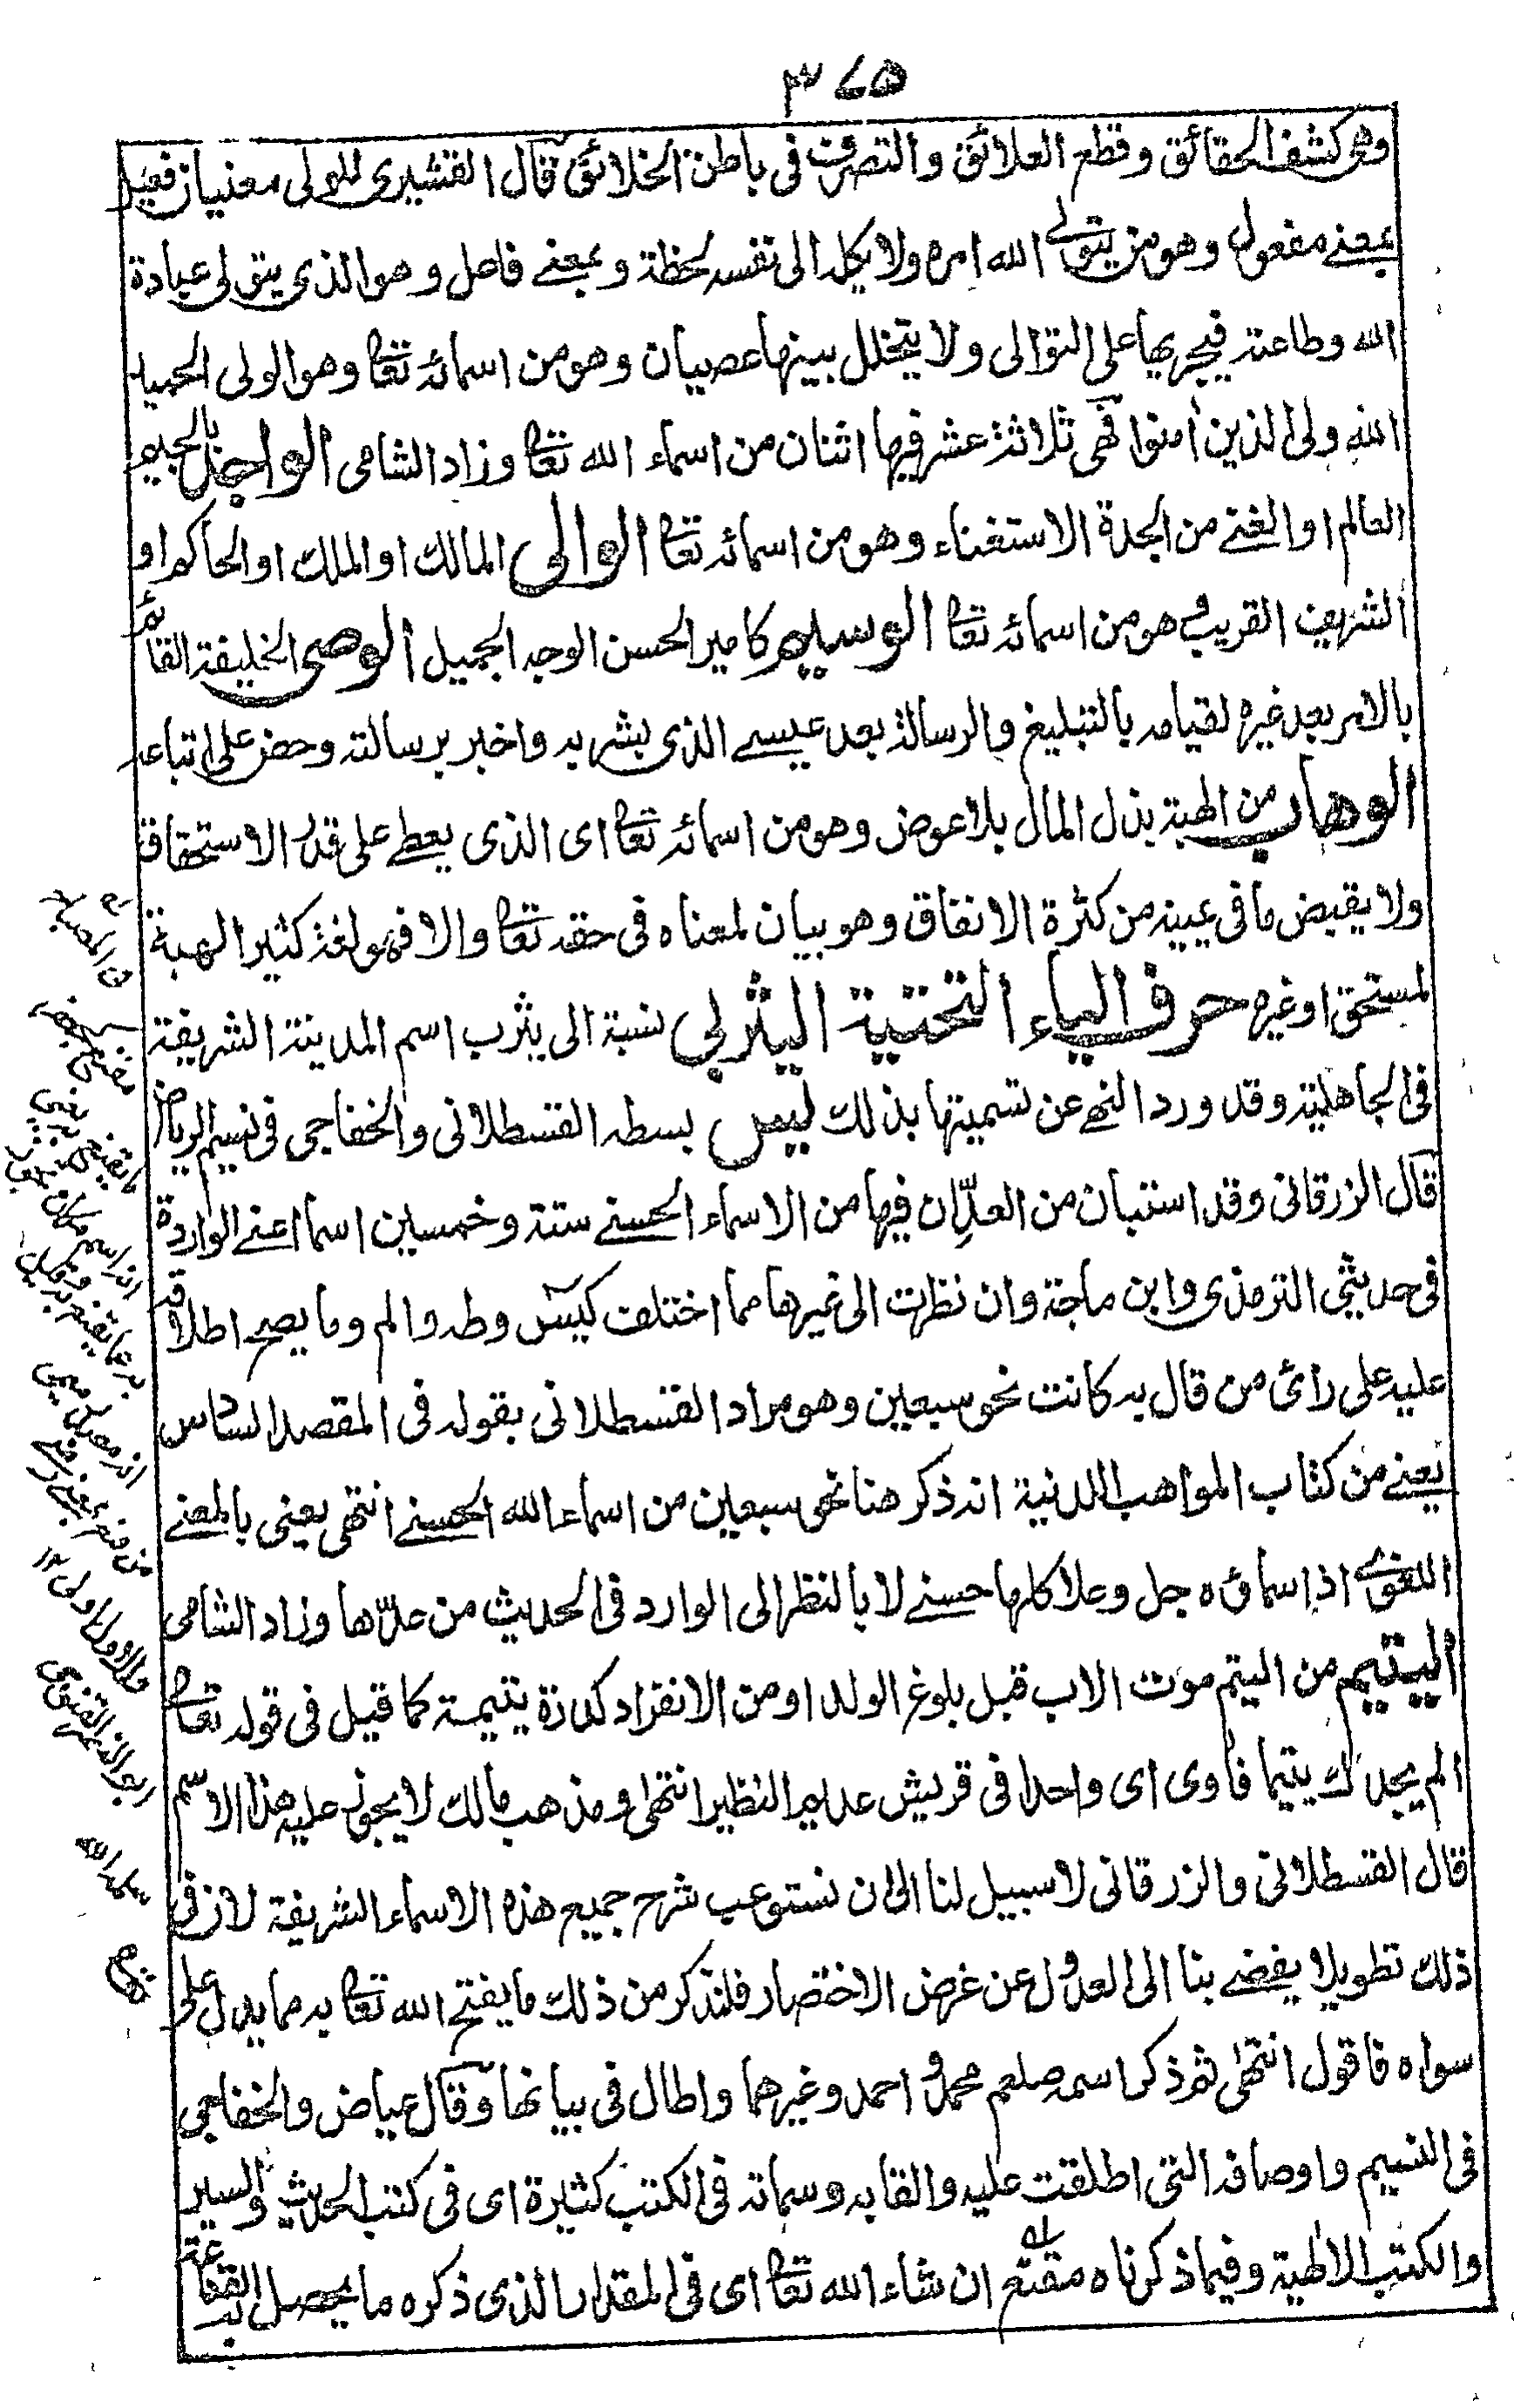 ٣٧٥
وهى كشف الحقائق وقطع العلائق والتصرف فى باطن الخلائق قال القشيرى للولى معنيان فعيل
بمعنے مفعول وهو من يتولے الله امره ولا يكله الى نفسه لحظة وبمعنے فاعل وهو الذى يتولى عبادة
الله وطاعته فيجريها على التوالى ولا يتخلل بينها عصيان وهو من اسمائه تعا وهو الولى الحميد
الله ولى الذين أمنوا فهى ثلاثة عشر فيها اثنان من اسماء الله تعا وزاد الشامى الواجد بالجيم
العالم او الغنے من الجدة الاستغناء وهو من اسمائه تعا الوالى المالك او الملك او الحاكم او
الشريف القريب وهو من اسمائه تعا الوسيم كامير الحسن الوجه الجميل الوصى الخليفة القائم
بالامر بعد غيره لقيامه بالتبليغ والرسالة بعد عيسے الذى بشر به واخبر برسالته وحض على اتباعه
الوهاب من الهبة بذل المال بلا عوض وهو من اسمائه تعا اى الذى يعطے على قدر الاستحقاق
ولا يقيض ما فى يمينه من كثرة الانفاق وهو بيان لمعناه فى حقه تعا والا فهو لغة كثير الهبة
لمستحق او غيره حرف الياء التحتية اليثربى نسبة الى يثرب اسم المدينة الشريفة
فى الجاهلية وقد ورد النهے عن تسميتها بذلك ليس بسطه القسطلانى والخفاجى فى نسيم الرياض
قال الزرقانى وقد استبان من العدّ ان فيها من الاسماء الحسنے ستة وخمسين اسما اعنے الواردة
فى حديثى الترمذى وابن ماجة وان نظرت الى غيرها مما اختلف كيس وطه والم وما يصح اطلاقه
عليه على رائ من قال به كانت نحو سبعين وهو مراد القسطلانى بقوله فى المقصد السادس
يعنے من كتاب المواهب اللدنية انه ذكر هنا نحو سبعين من اسماء الله الحسنے انتهى يعنى بالمعنے
اللغوے اذ اسماؤه جل وعلا كلها حسنے لا بالنظر الى الوارد فى الحديث من عدّها وزاد الشامى
اليتيم من اليتم موت الاب قبل بلوغ الولد او من الانفراد كدرة يتيمة كما قيل فى قوله تعا
الم يجدك يتيما فأوى اى واحدا فى قريش عديم النظير انتهى ومذهب مالك لا يجوز عليه هذا الاسم
قال القسطلانى والزرقانى لا سبيل لنا الى ان نستوعب شرح جميع هذه الاسماء الشريفة لان فى
ذلك تطويلا يفضے بنا الى العدول عن غرض الاختصار فلنذكر من ذلك ما يفتح الله تعا به مما يدل على
سواه فاقول انتهى ثم ذكر اسمه صلعم محمد و احمد وغيرهما واطال فى بيانها وقال عياض والخفاجى
فى النسيم واوصافه التى اطلقت عليه والقابه وسماته فى الكتب كثيرة اى فى كتب الحديث والسير
والكتب الالهية وفيما ذكرناه مقنع ان شاء الله تعا اى فى المقدار الذى ذكره ما يحصل به القناعة